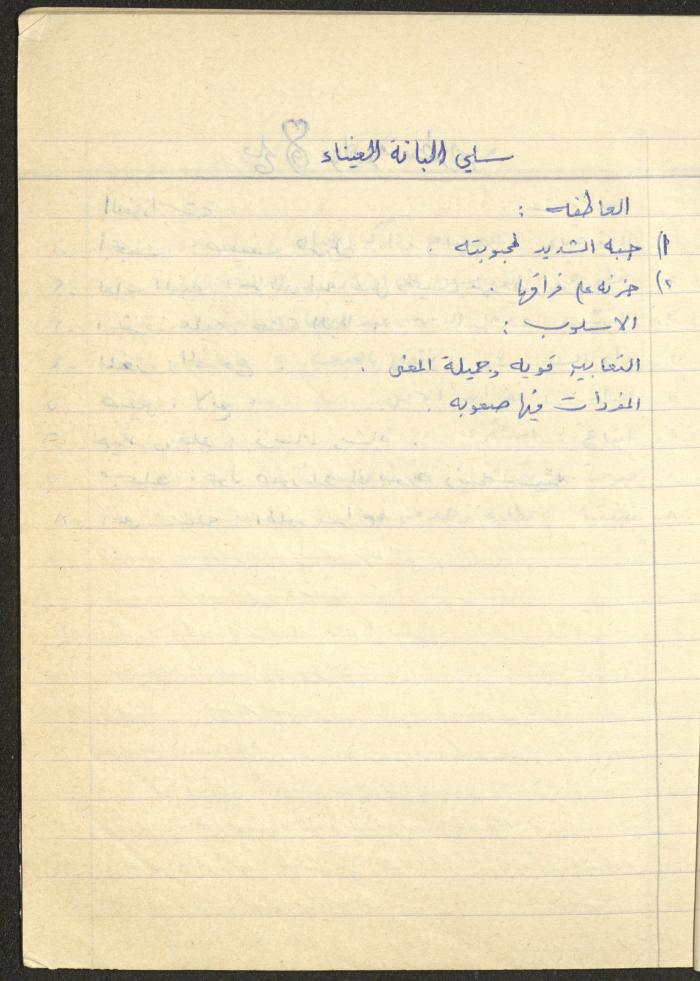 سلي البانة الغيناء
العاطفه :
١) حبه الشديد لمحبوبته .
٢) حزنه على فراقها .
الاسلوب :
التعابير قويه وجميلة المعنى .
المفردات فيها صعوبه .